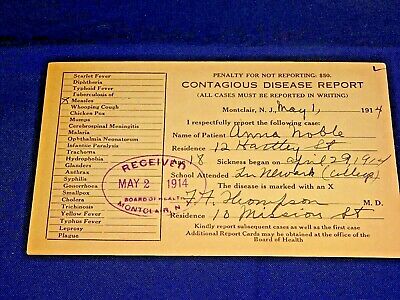 Scarlet Fever
Diphtheria
Typhoid Fever
Tuberculosis of
X Measles
Whooping Cough
Chicken Pox
Mumps
Cerebrospinal Meningitis
Malaria
Ophthalmia Neonatorum
Infantile Paralysis
Trachoma
Hydrophobia
Glanders
Anthrax
Syphilis
Gonorrhoea
Smallpox
Cholera
Trichinosis
Yellow Fever
Typhus Fever
Leprosy
Plague
PENALTY FOR NOT REPORTING: $50.
CONTAGIOUS DISEASE REPORT
(ALL CASES MUST BE REPORTED IN WRITING)
Montclair, N. J., May 1, 1914
I respectfully report the following case:
Name of Patient Anna Noble
Residence 12 Hartley St
18 Sickness began on April 29 1914
School Attended In Newark (College)
The disease is marked with an X
Thompson M. D.
Residence 10 Mission St
Kindly report subsequent cases as well as the first
Additional Report Cards may be obtained at the office of the
Board of Health
RECEIVED
MAY 2 1914
BOARD OF HEALTH
MONTCLAIR, N.